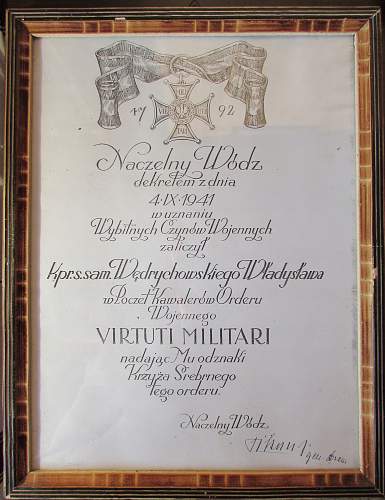 17 92
Naczelny Wódz
dekretem z dnia
4·IX·1941
w uznaniu
Wybitnych Czynów Wojennych
zaliczył
Kpr.s.sam. Wędrychowskiego Władysława
w Poczet Kawalerów Orderu
Wojennego
VIRTUTI MILITARI
nadając Mu odznaki
Krzyża Srebrnego
Tego orderu.
Naczelny Wódz